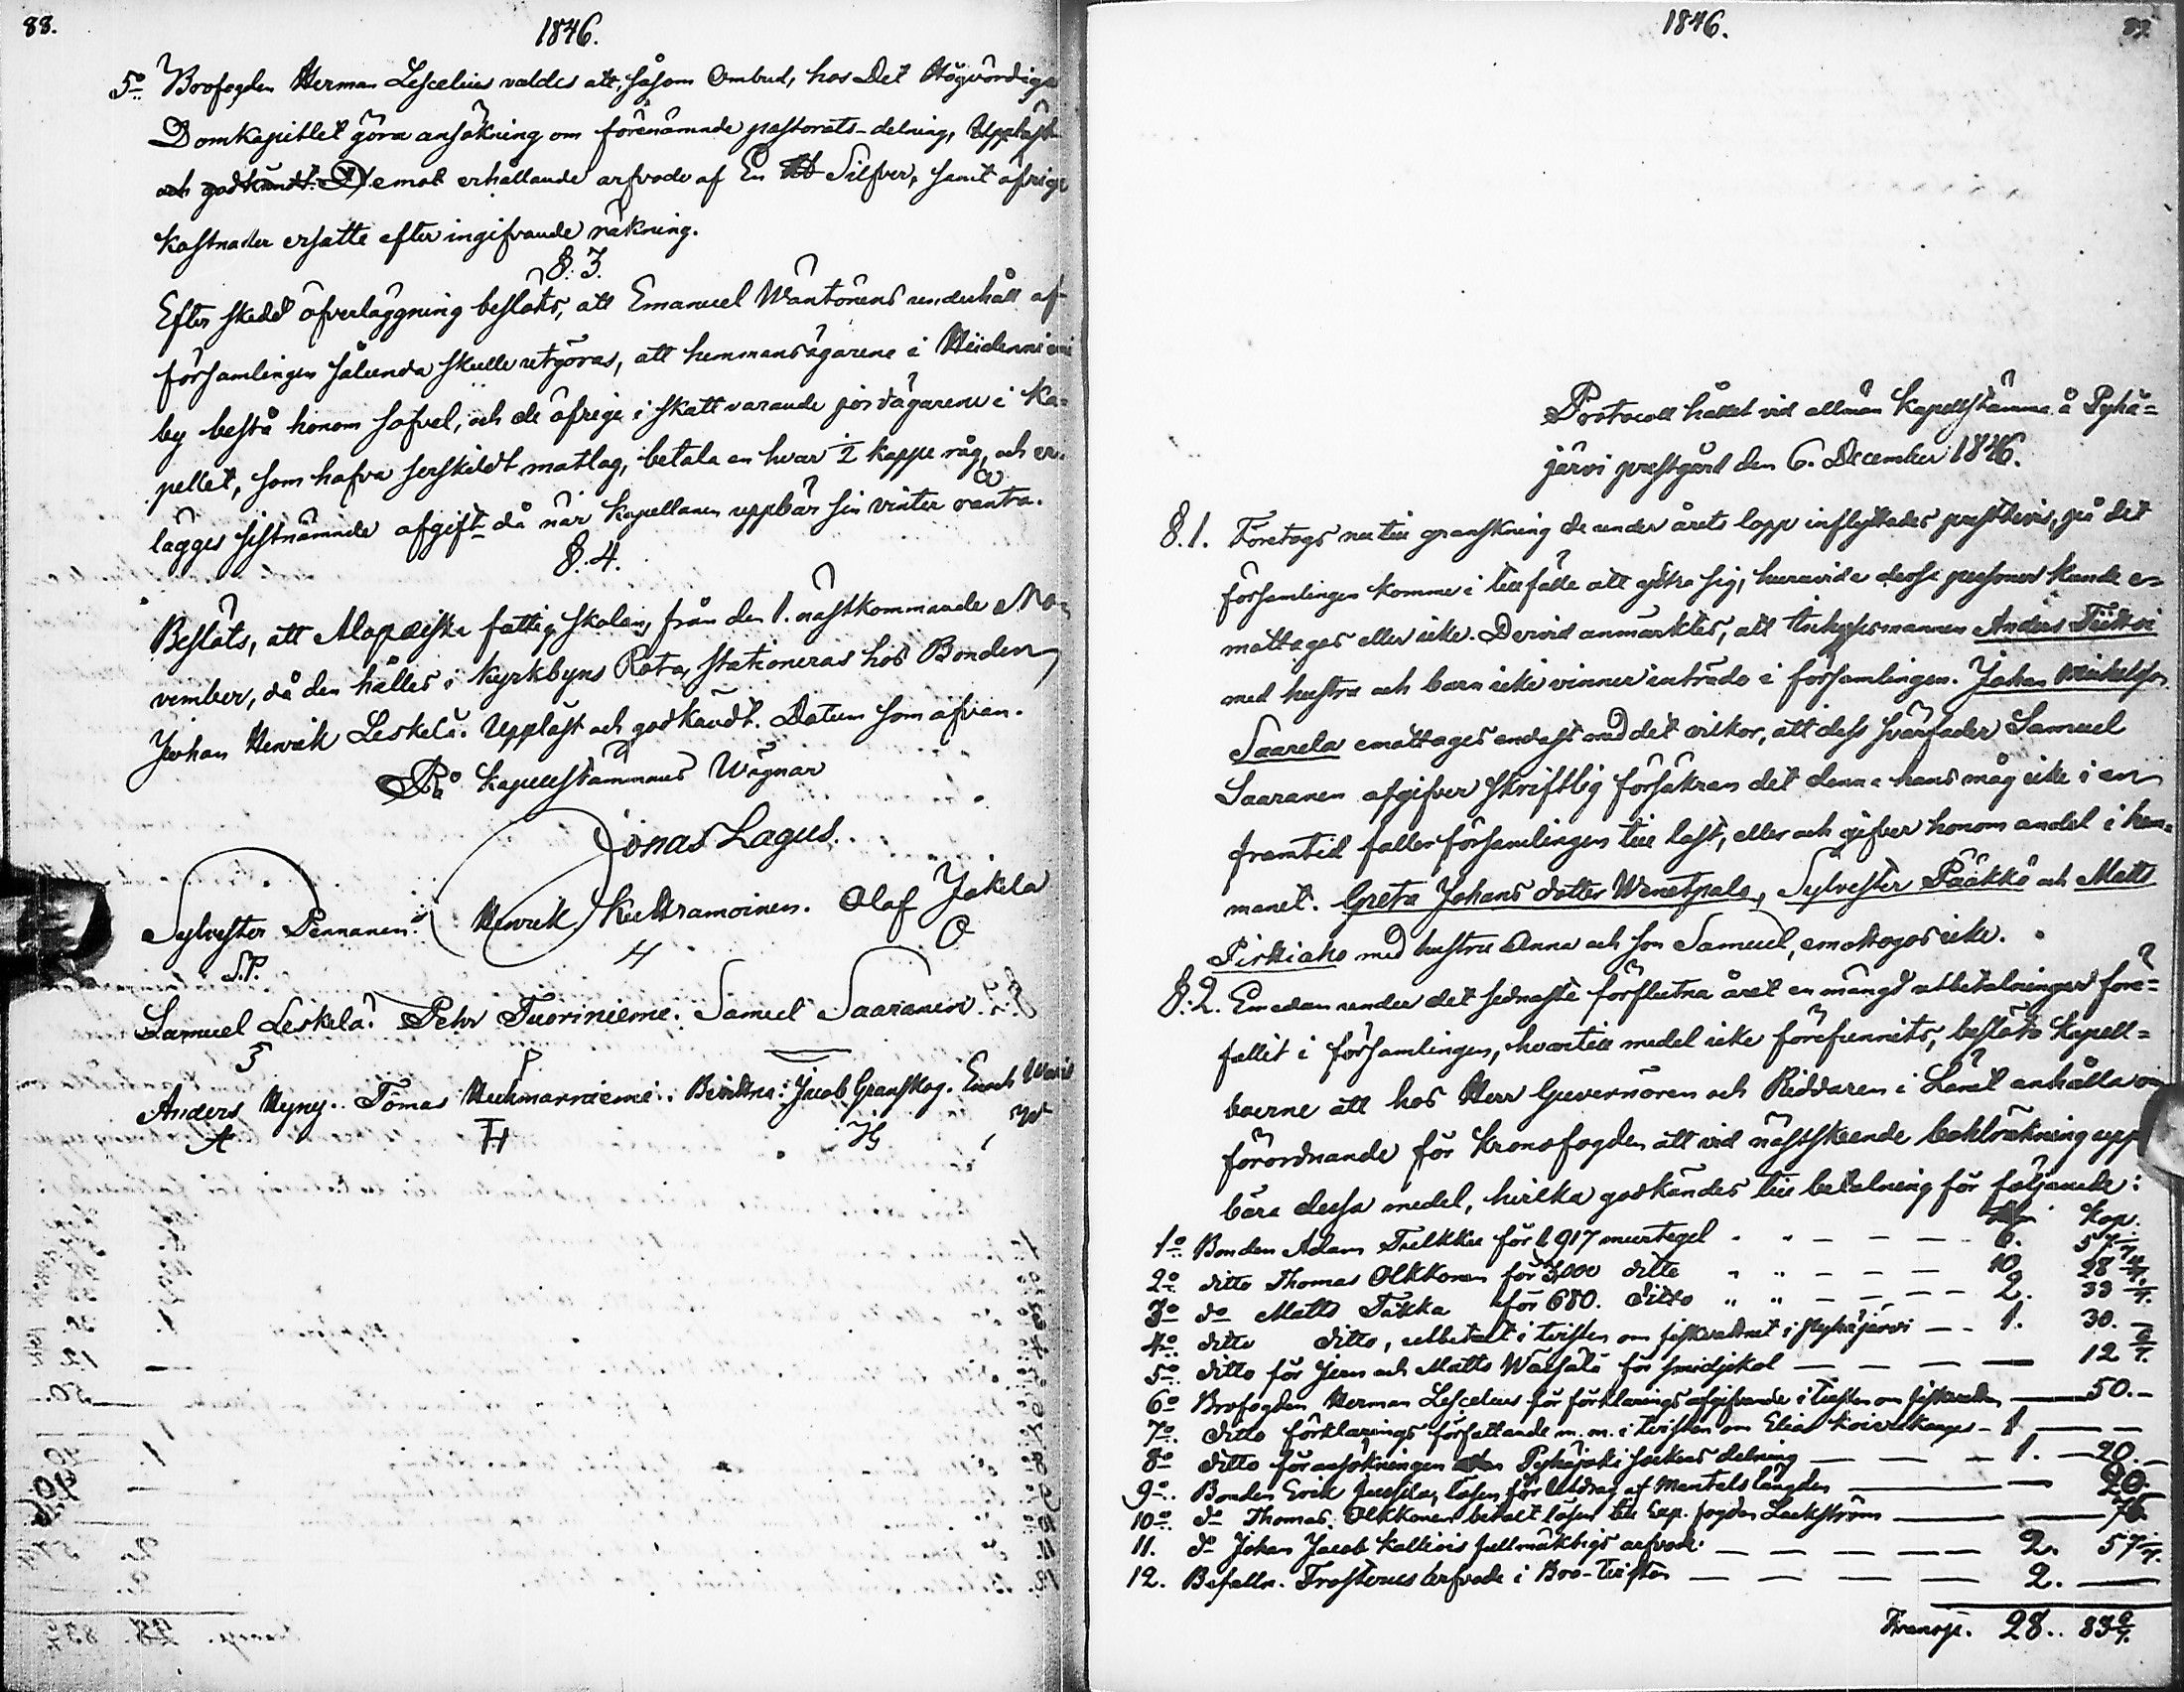 88.
1846.
5o Brofogden Herman Lescelius valdes att, såsom Ombud, hos Det Högvördiga
Domkapitlet göra ansökning om förenämnde pastorats-delning, Uppläst
och godkändt. D emot erhållande arfvode af En Silfver, samt öfrige
kostnader ersatte efter ingifvande räkning.
§. 3.
Efter skedd öfverläggning beslöts, att Emanuel Wäntönens underhåll af
församlingen sålunda skulle utgöras, att hemmansägarene i Hiidenniemi
by bestå honom sofvel, och de öfrige i skatt varande jordägarene i Ka-
pellet, som hafva serskildt matlag, betala en hvar ½ kappe råg, och er-
lägges sistnämnde afgift då när Kapellanen uppbär sin vinter ränta.
§. 4.
Beslöts, att Mopæiska fattig skolan, från den 1. nästkommande No-
vember, då den hålles i Kyrkbyns Rota, stationeras hos Bonden
Johan Henrik Leskelä. Uppläst och godkändt. Datum som ofvan.
På Kapellstämmans Wägnar
Jonas Lagus.
Sylvester Pennanen. Henrik Kuttramoinen. Olof Jokela
S.P. H O
Samuel Leskelä. Pehr Tuoriniemi. Samuel Saaranen.
Anders Hyny. Tomas Huhmarniemi. Bevittna: Jacob Granskog. Enoch
A TH JG
1846.
89.
Protocoll hållet vid allmän Kapellstämma å Pyhä-
järvi prestgård den 6. December 1846.
§. 1. Företogs nu till granskning de under årets lopp inflyttades prestbevis, på det
församlingen komme i tillfälle att yttra sig, huruvida dessa personer kunde e-
mottages eller icke. Dervid anmärktes, att inhysesmannen Anders Tiikoi
med hustru och barn icke vinner inträde i församlingen. Johan Mickelsson
Saarela emottages endast med det vilkor, att dess svärfader Samuel
Saaranen afgifver skriftlig försäkran det denna hans måg icke i en
framtid faller församlingen till last, eller och gifver honom andel i hem-
manet. Greta Johans dotter Wenetpalo, Sylvester Pääkkö och Matts
Pirkiaho med hustru Anna och son Samuel, emottogos icke.
§. 2. Emedan under det sednaste förflutna året en mängd utbetalningar före-
fallit i församlingen, hvartill medel icke förefunnits, beslöto Kapell-
boerne att hos Herr Guvernören och Riddaren i Länet anhålla om
förordnande för Kronofogden att vid nästskeende bokloräkning upp
bära dessa medel, hvilka godkändes till betalning för följande:
Kop.
1o Bonden Adam Tulkku för 1917 murtegel 6. 57 1/7
2o ditto Thomas Olkkonen för 3,000 ditto 10. 28 4/7
3o do Matts Takka för 680. ditto 2. 33 1/7.
4o ditto ditto, utbetalt i tvisten om fiskvattnet i Pyhäjärvi 1. 30. —
5o ditto för Jern och Matts Wäisälä för smidjekol 12 6/7.
6o Brofogden Herman Lescelius för förklarings afgifvande i tvisten om fiskvatten 50. —
7o ditto förklarings författande m. m. i tvisten om Elias Koivukangas 1 —
8o ditto för ansökningen om Pyhäjoki sockens delning 1. 20. —
9o Bonden Erik Jussila, lösen för Utdrag af Mantals längden 20.
10o do Thomas Olkkonen betalt lösen till Exp. fogden Lackström 76
11. do Johan Jacob Kallios fullmäktigs arfvode 2. 57 1/7.
12. Befalln. Frosterus arfvode i Bro-tvisten 2. —
Transp. 28. 83 6/7.